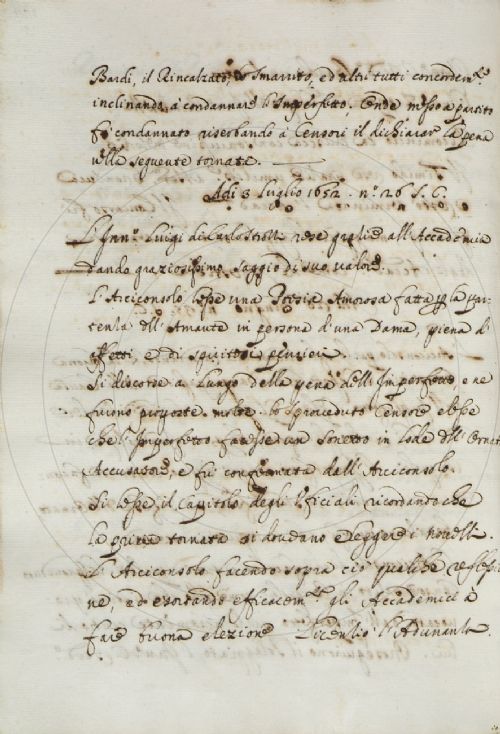 Bardi, il Rincalzato, lo Smarrito, ed altri tutti concordem.te
inclinando à condannare lo Imperfetto, Onde messo a partito
fù condannato riserbando à Censori il dichiarar la pena
nella seguente tornata.
Adi 3 Luglio 1652. n.º 26 S. C.
L'Inn.º Luigi di Carlo Strozzi rese grazie all'Accademia
dando graziosissimo saggio di suo valore.
L'Arciconsolo lesse una Poesia Amorosa fatta per la par-
tenza dell'Amante in persona d'una Dama, piena d'
affetti, e di spiritosi pensieri.
Si discorse a lungo della pena dell'Imperfetto, e ne
furono proposte molte. lo Sproveduto Censore elesse
che l'Imperfetto facesse un Sonetto in lode dell'
Accusatore, e fù confermata dall'Arciconsolo.
Si lesse il Capitolo degli Ufficiali ricordando che
la prima tornata si doveano eleggere i novelli.
L'Arciconsolo facendo sopra ciò qualche reflessio-
ne, ed esortando efficacem.te gli Accademici à
fare buona elezione licenziò l'Adunanza.